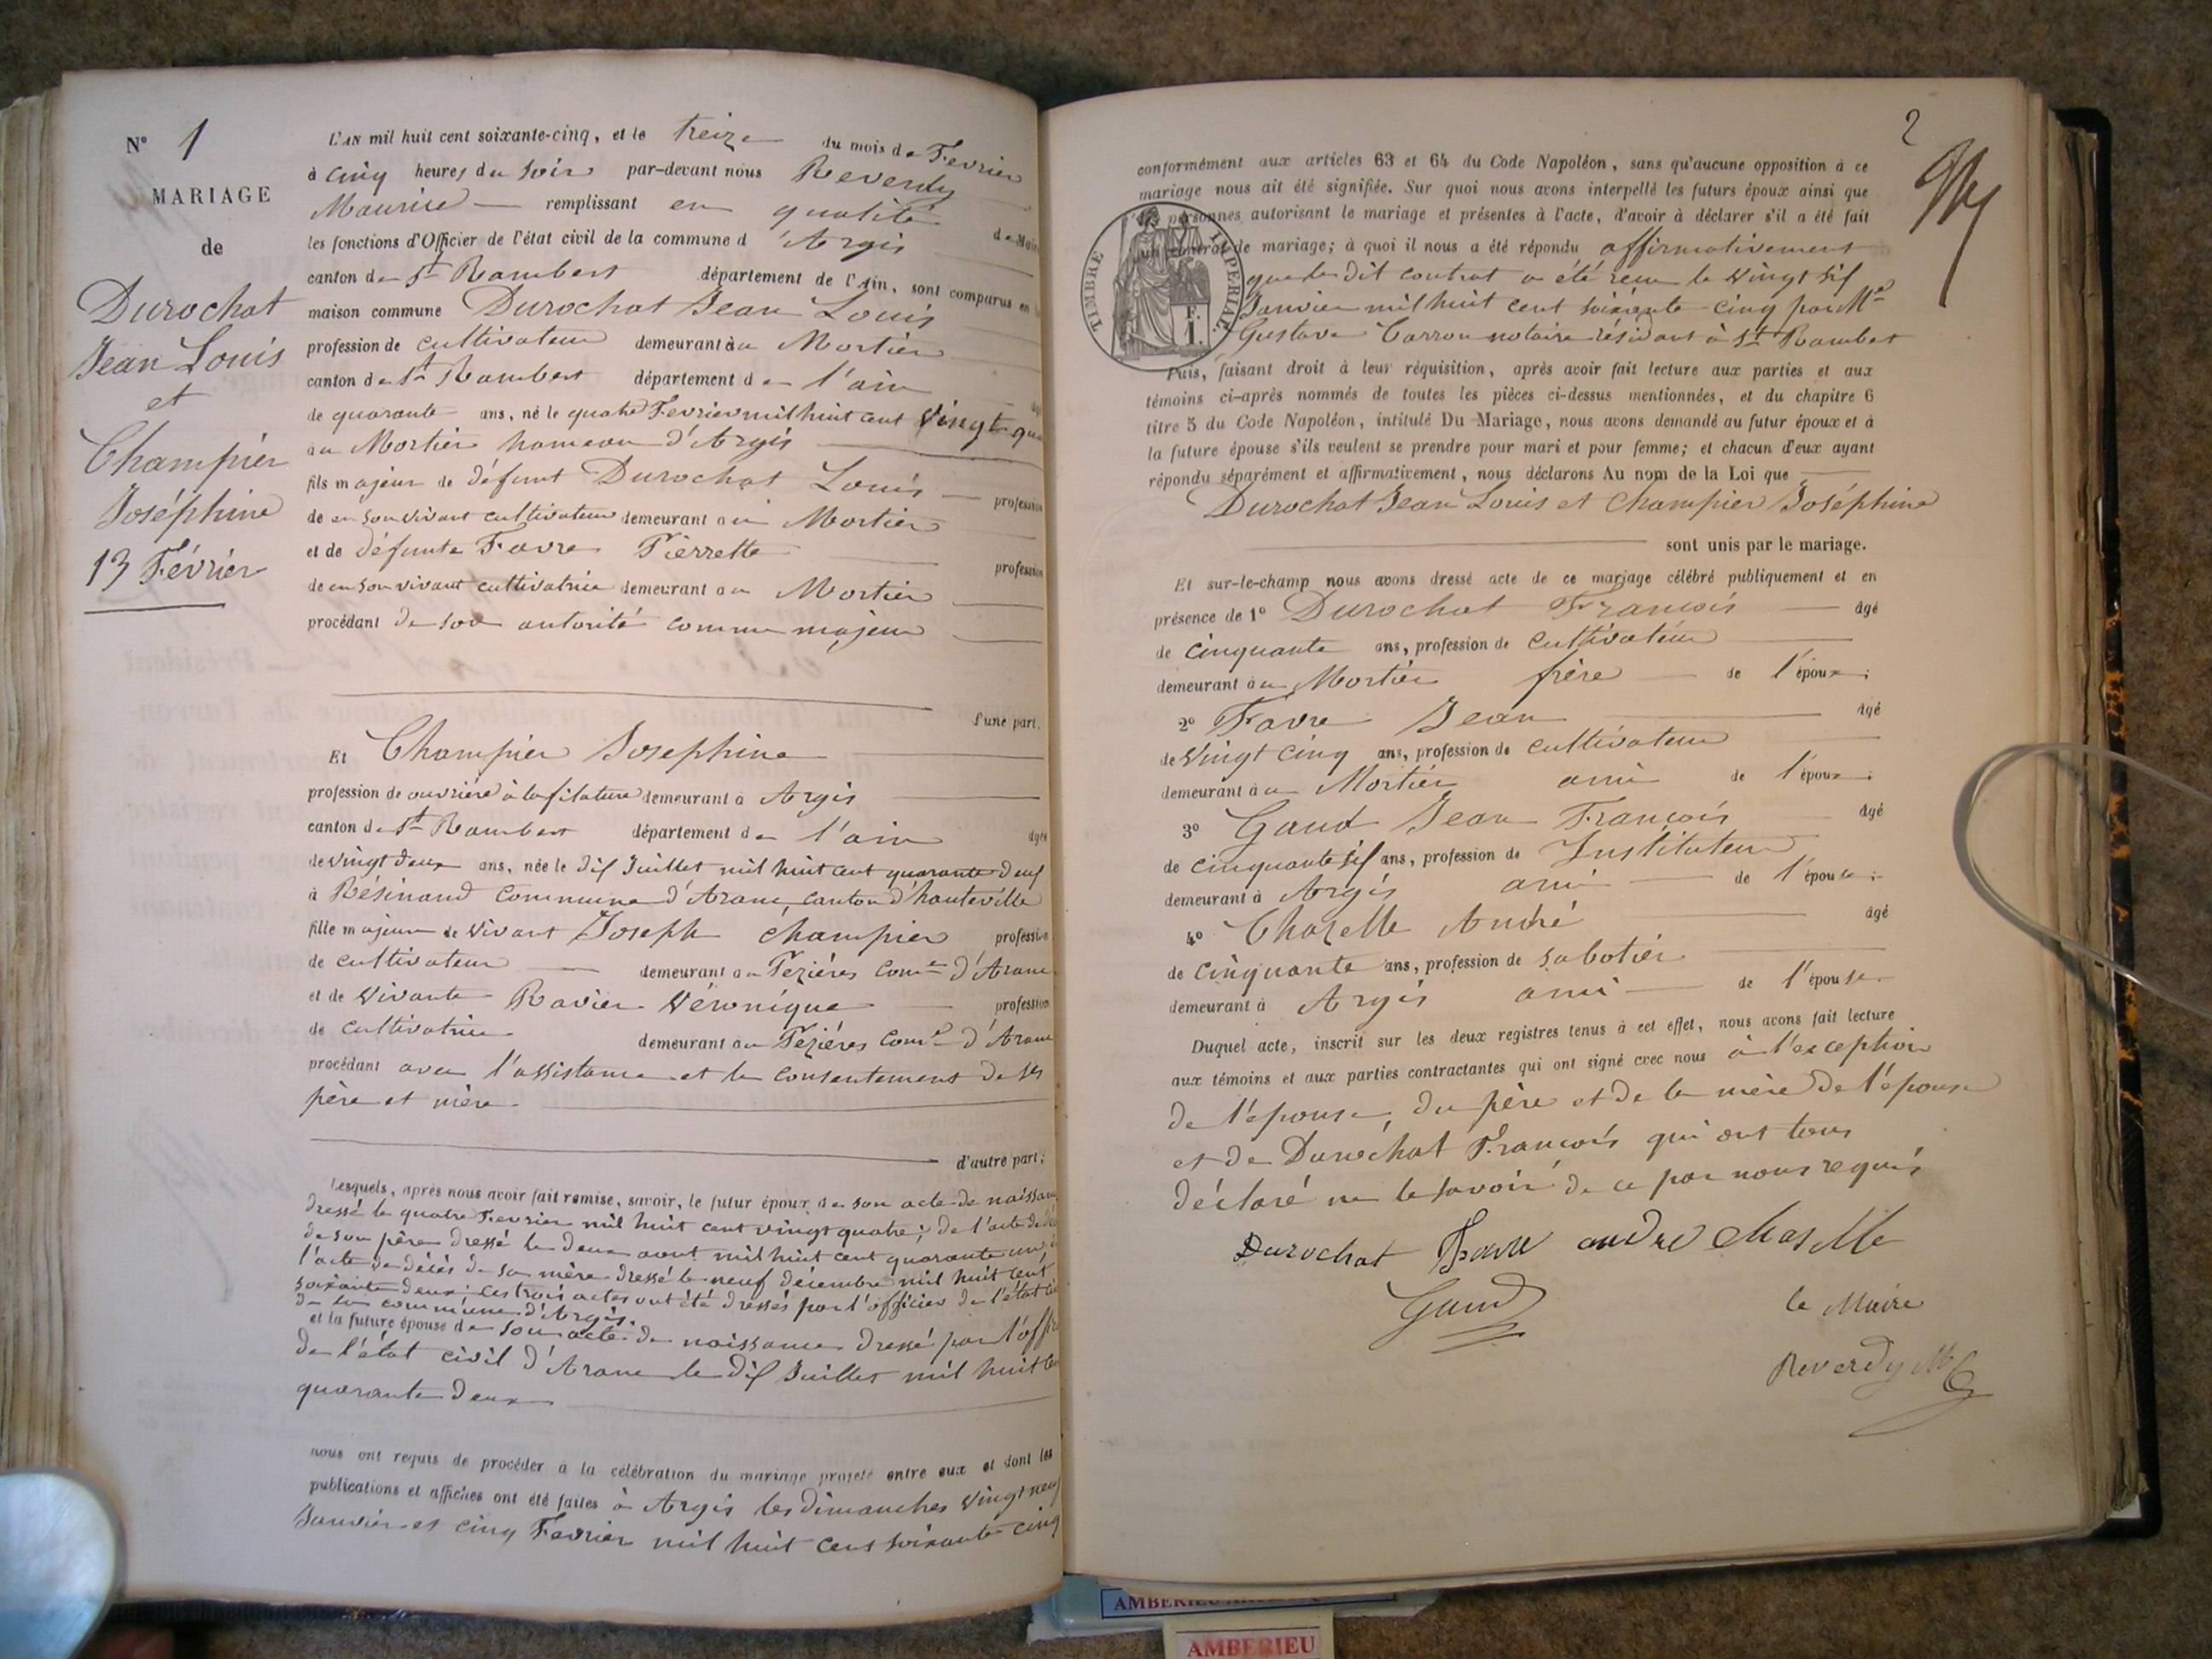 N° 1
MARIAGE
de
Durochat
Jean Louis
et
Champier
Joséphine
13 Février
L'AN mil huit cent soixante-cinq, et le treize du mois de Fevrier
à cinq heures du soir par-devant nous Reverdy
Maurice remplissant en qualité de Maire
les fonctions d'Officier de l'état civil de la commune d'Argis
canton de St Rambert département de l'Ain, sont comparus en la
maison commune Durochat Jean Louis
profession de cultivateur demeurant au Mortier
canton de St Rambert département de l'ain
de quarante ans, né le quatre Fevrier mil huit cent vingt qua
au Mortier hameau d'Argis
fils majeur de défunt Durochat Louis profession
de en son vivant cultivateur demeurant au Mortier
et de défunte Favre Pierrette profession
de en son vivant cultivatrice demeurant au Mortier
procédant de son autorité comme majeur
l'une part.
Et Champier Josephine
profession de ouvrière à la filature demeurant à Argis
canton de St Rambert département de l'ain agée
de vingt deux ans, née le dix Juillet mil huit cent quarante deux
à Résinand commune d'Aranc, canton d'hauteville
fille majeure de vivant Joseph Champier profession
de cultivateur demeurant au Pezières Comne d'Aranc
et de vivante Ravier Véronique profession
de cultivatrice demeurant au Pézières Comne d'Aranc
procédant avec l'assistance et le consentement de ses
père et mère
d'autre part;
Lesquels, après nous avoir fait remise, savoir, le futur époux de son acte de naissance
dressé le quatre Fevrier mil huit cent vingt quatre; de l'acte de dé
de son père dressé le deux aout mil huit cent quarante un;
l'acte de décès de sa mère dressé le neuf décembre mil huit cent
soixante deux; ces trois actes ont été dressés par l'officier de l'état ci
de la commune d'Argis.
et la future épouse de son acte de naissance dressé par l'offi
de l'état civil d'Aranc le dix Juillet mil huit ce
quarante deux
nous ont requis de procéder à la célébration du mariage projeté entre eux et dont les
publications et affiches ont été faites à Argis les dimanches vingt neuf
Janvier et cinq Fevrier mil huit cent soixante cinq
2
conformément aux articles 63 et 64 du Code Napoléon, sans qu'aucune opposition à ce
mariage nous ait été signifiée. Sur quoi nous avons interpellé les futurs époux ainsi que
les personnes autorisant le mariage et présentes à l'acte, d'avoir à déclarer s'il a été fait
un contrat de mariage; à quoi il nous a été répondu affirmativement
TIMBRE IMPERIAL
F.
1.
que le dit contrat a été recu le vingt six
Janvier mil huit cent soixante-cinq par Me
Gustave Carron notaire résidant à St Rambert
Puis, faisant droit à leur réquisition, après avoir fait lecture aux parties et aux
témoins ci-après nommés de toutes les pièces ci-dessus mentionnées, et du chapitre 6
titre 5 du Code Napoléon, intitulé Du Mariage, nous avons demandé au futur époux et à
la future épouse s'ils veulent se prendre pour mari et pour femme; et chacun d'eux ayant
répondu séparément et affirmativement, nous déclarons Au nom de la Loi que
Durochat Jean Louis et Champier Joséphine
sont unis par le mariage.
Et sur-le-champ nous avons dressé acte de ce mariage célébré publiquement et en
présence de 1° Durochat François âgé
de cinquante ans, profession de cultivateur
demeurant au Mortier frère de l'époux;
2° Favre Jean âgé
de vingt cinq ans, profession de cultivateur
demeurant au Mortier ami de l'époux;
3° Gaud Jean François âgé
de cinquante six ans, profession de Instituteur
demeurant à Argis ami de l'épouse;
4° Chazelle André âgé
de cinquante ans, profession de sabotier
demeurant à Argis ami de l'épouse.
Duquel acte, inscrit sur les deux registres tenus à cet effet, nous avons fait lecture
aux témoins et aux parties contractantes qui ont signé avec nous à l'exception
de l'épouse, du père et de la mère de l'épouse
et de Durochat François qui ont tous
déclaré ne le savoir de ce par nous requis
Durochat Favre andré Chaselle
Gaud
le Maire
Reverdy M
AMBERIEU
AMBERIEU